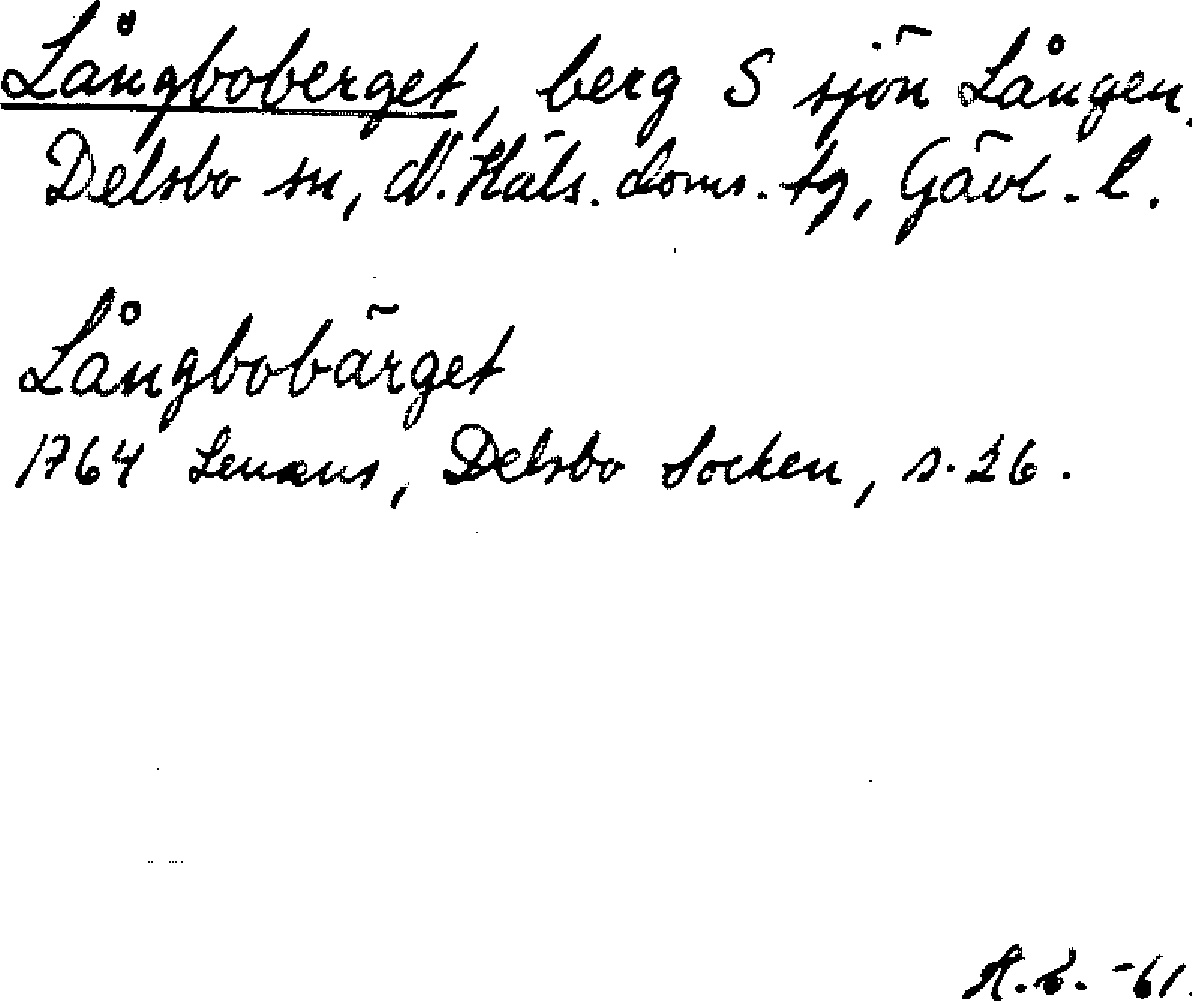 Långboberget, berg S sjön Lången.
Delsbo sn, N. Häls. doms. tg, Gävl. l.
Långbobärget
1764 Lenæus, Delsbo Socken, s. 26.
-61.